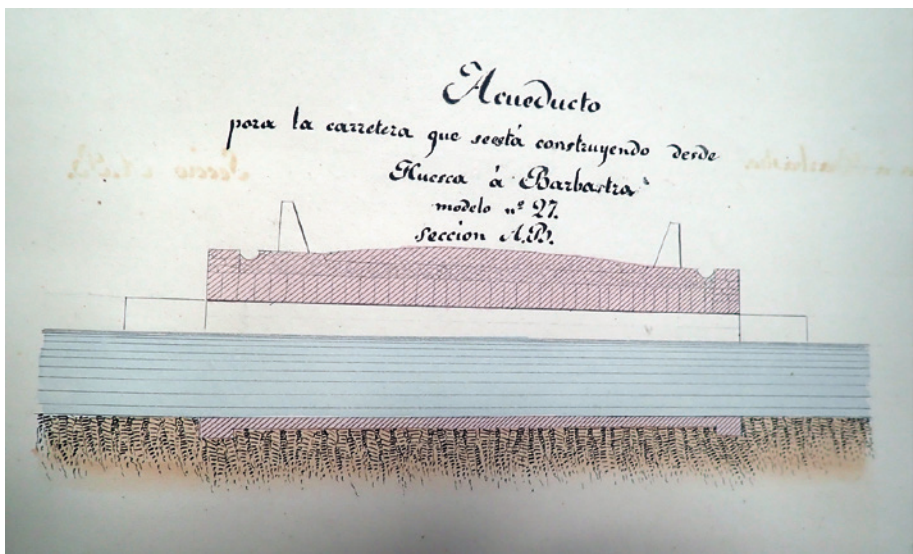 Acueducto
para la carretera que seestá construyendo desde
Huesca á Barbastra
modelo nº 27.
seccion A.B.